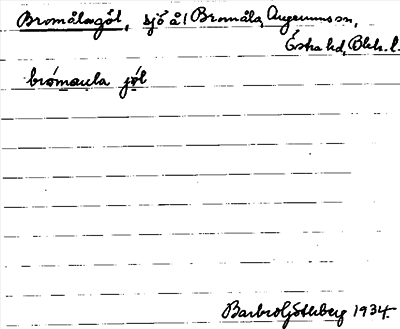 Bromålagöl, sjö å 1 Bromåla, Augerums sn,
Östra hd, Blek. l.
brómaula jöl
Barbro Götlberg 1934.